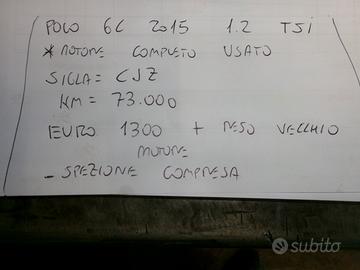 POLO 6C 2015 1.2 TSI
* MOTORE COMPLETO USATO
SIGLA = CJZ
KM = 73.000
EURO 1300 + RESO VECCHIO
MOTORE
- SPEZIONE COMPRESA
subito